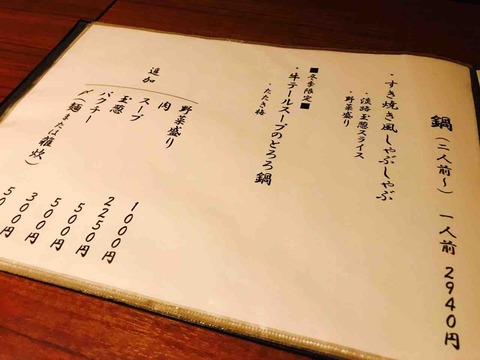 鍋（二人前〜） 一人前 2940円
・すき焼き風しゃぶしゃぶ
・淡路玉葱スライス
・野菜盛り
■冬季限定■
・牛テールスープのとろろ鍋
・たたき梅
追加
野菜盛り 1000円
肉 2250円
スープ 500円
玉葱 500円
パクチー 300円
〆（麺または雑炊） 500円